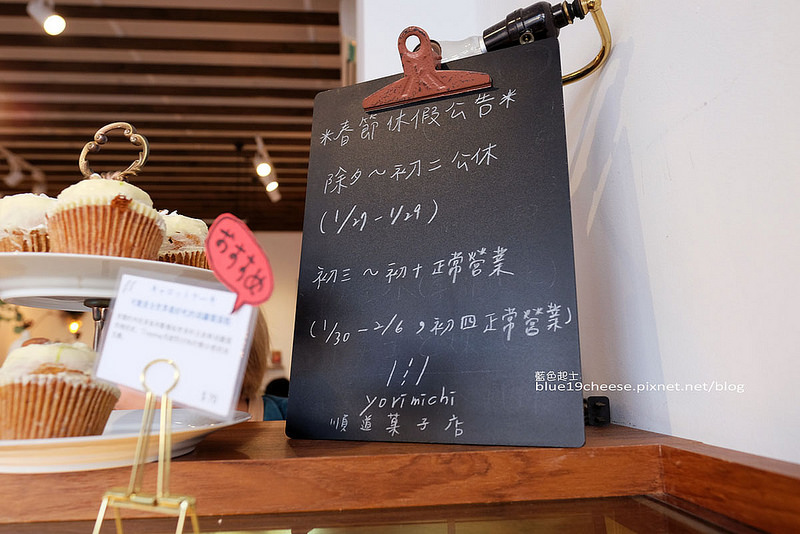 *春節休假公告*
除夕～初二公休
(1/27-1/29)
初三～初十正常營業
(1/30-2/6，初四正常營業)
yorimichi
順道菓子店
おすすめ
キャロットケーキ
藍色起士
blue19cheese.pixnet.net/blog